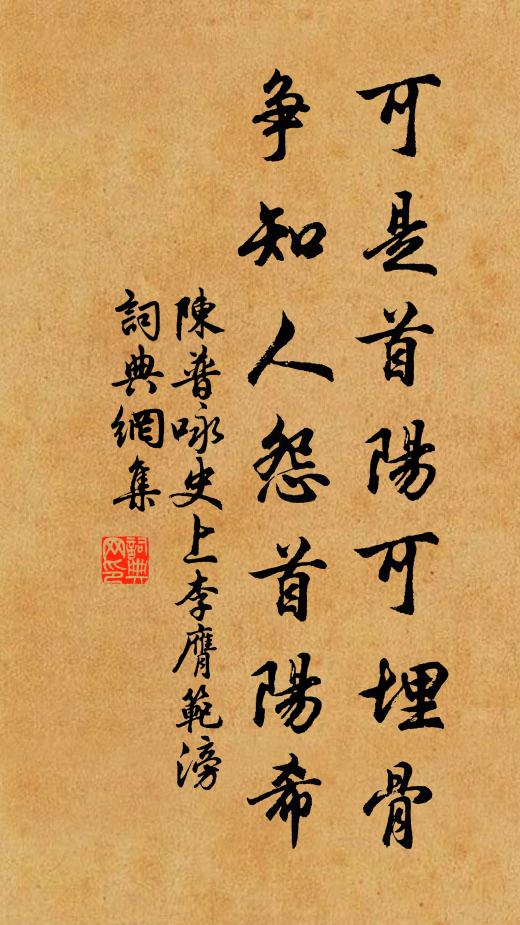 可是首陽可埋骨
争知人怨首陽希
陳普咏史上李膺範滂
詞典網集
詞典網印